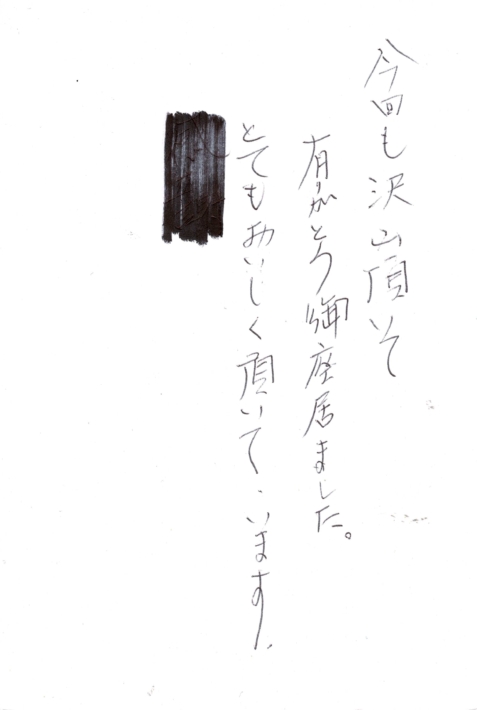 今回も沢山頂いて
有りがとう御座居ました。
とてもおいしく頂いています。